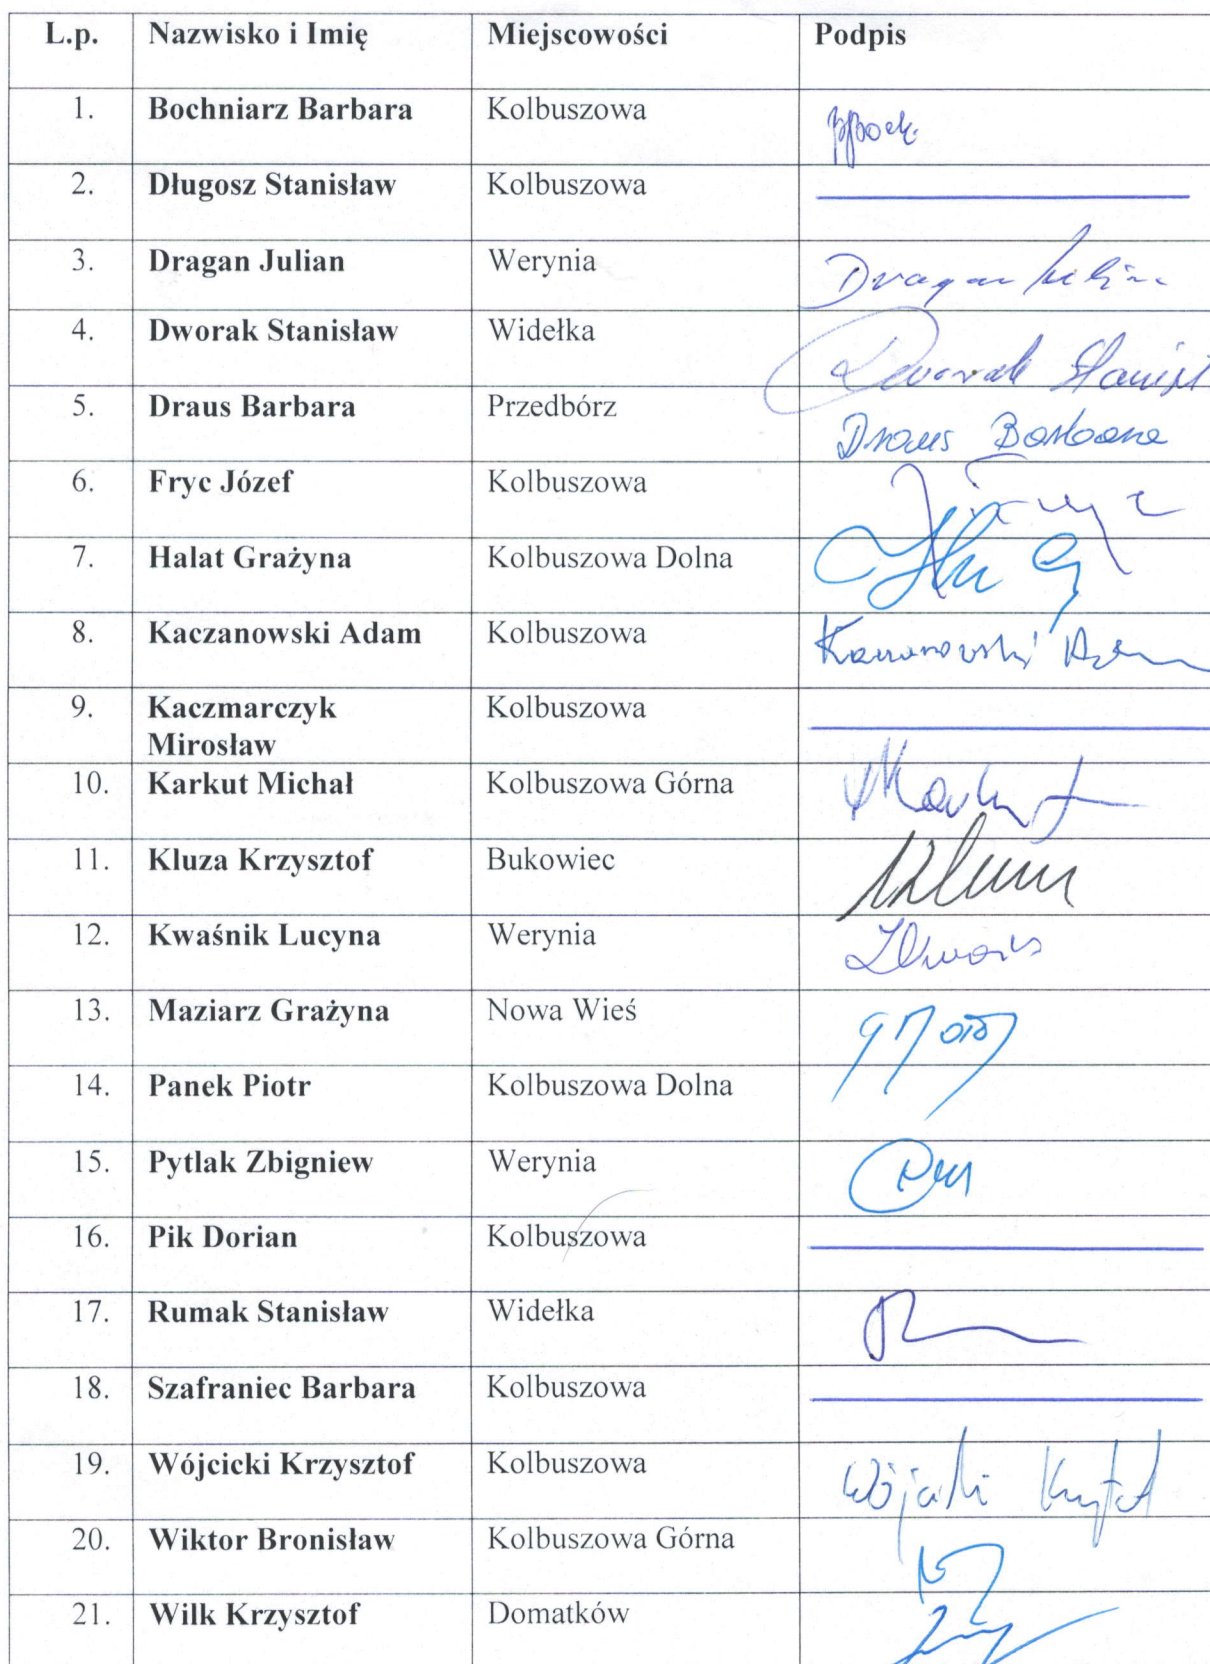 L.p. Nazwisko i Imię Miejscowości Podpis
1. Bochniarz Barbara Kolbuszowa
2. Długosz Stanisław Kolbuszowa
3. Dragan Julian Werynia Dragan Julian
4. Dworak Stanisław Widełka Dworak Stanisł
5. Draus Barbara Przedbórz Draus Barbara
6. Fryc Józef Kolbuszowa
7. Halat Grażyna Kolbuszowa Dolna
8. Kaczanowski Adam Kolbuszowa Kaczanowski Adam
9. Kaczmarczyk Kolbuszowa
Mirosław
10. Karkut Michał Kolbuszowa Górna MKarkut
11. Kluza Krzysztof Bukowiec
12. Kwaśnik Lucyna Werynia
13. Maziarz Grażyna Nowa Wieś
14. Panek Piotr Kolbuszowa Dolna
15. Pytlak Zbigniew Werynia
16. Pik Dorian Kolbuszowa
17. Rumak Stanisław Widełka
18. Szafraniec Barbara Kolbuszowa
19. Wójcicki Krzysztof Kolbuszowa Wójcicki Krzysztof
20. Wiktor Bronisław Kolbuszowa Górna
21. Wilk Krzysztof Domatków